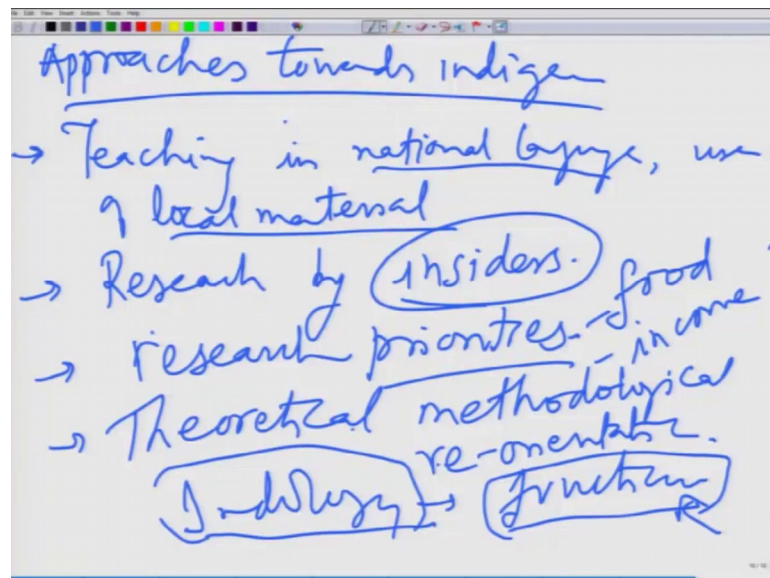 Approaches towards indigen
→ Teaching in national language, use
of local material
→ Research by insiders.
→ research priorities - food
- income
→ Theoretical methodological
re-orientation.
Indology → function